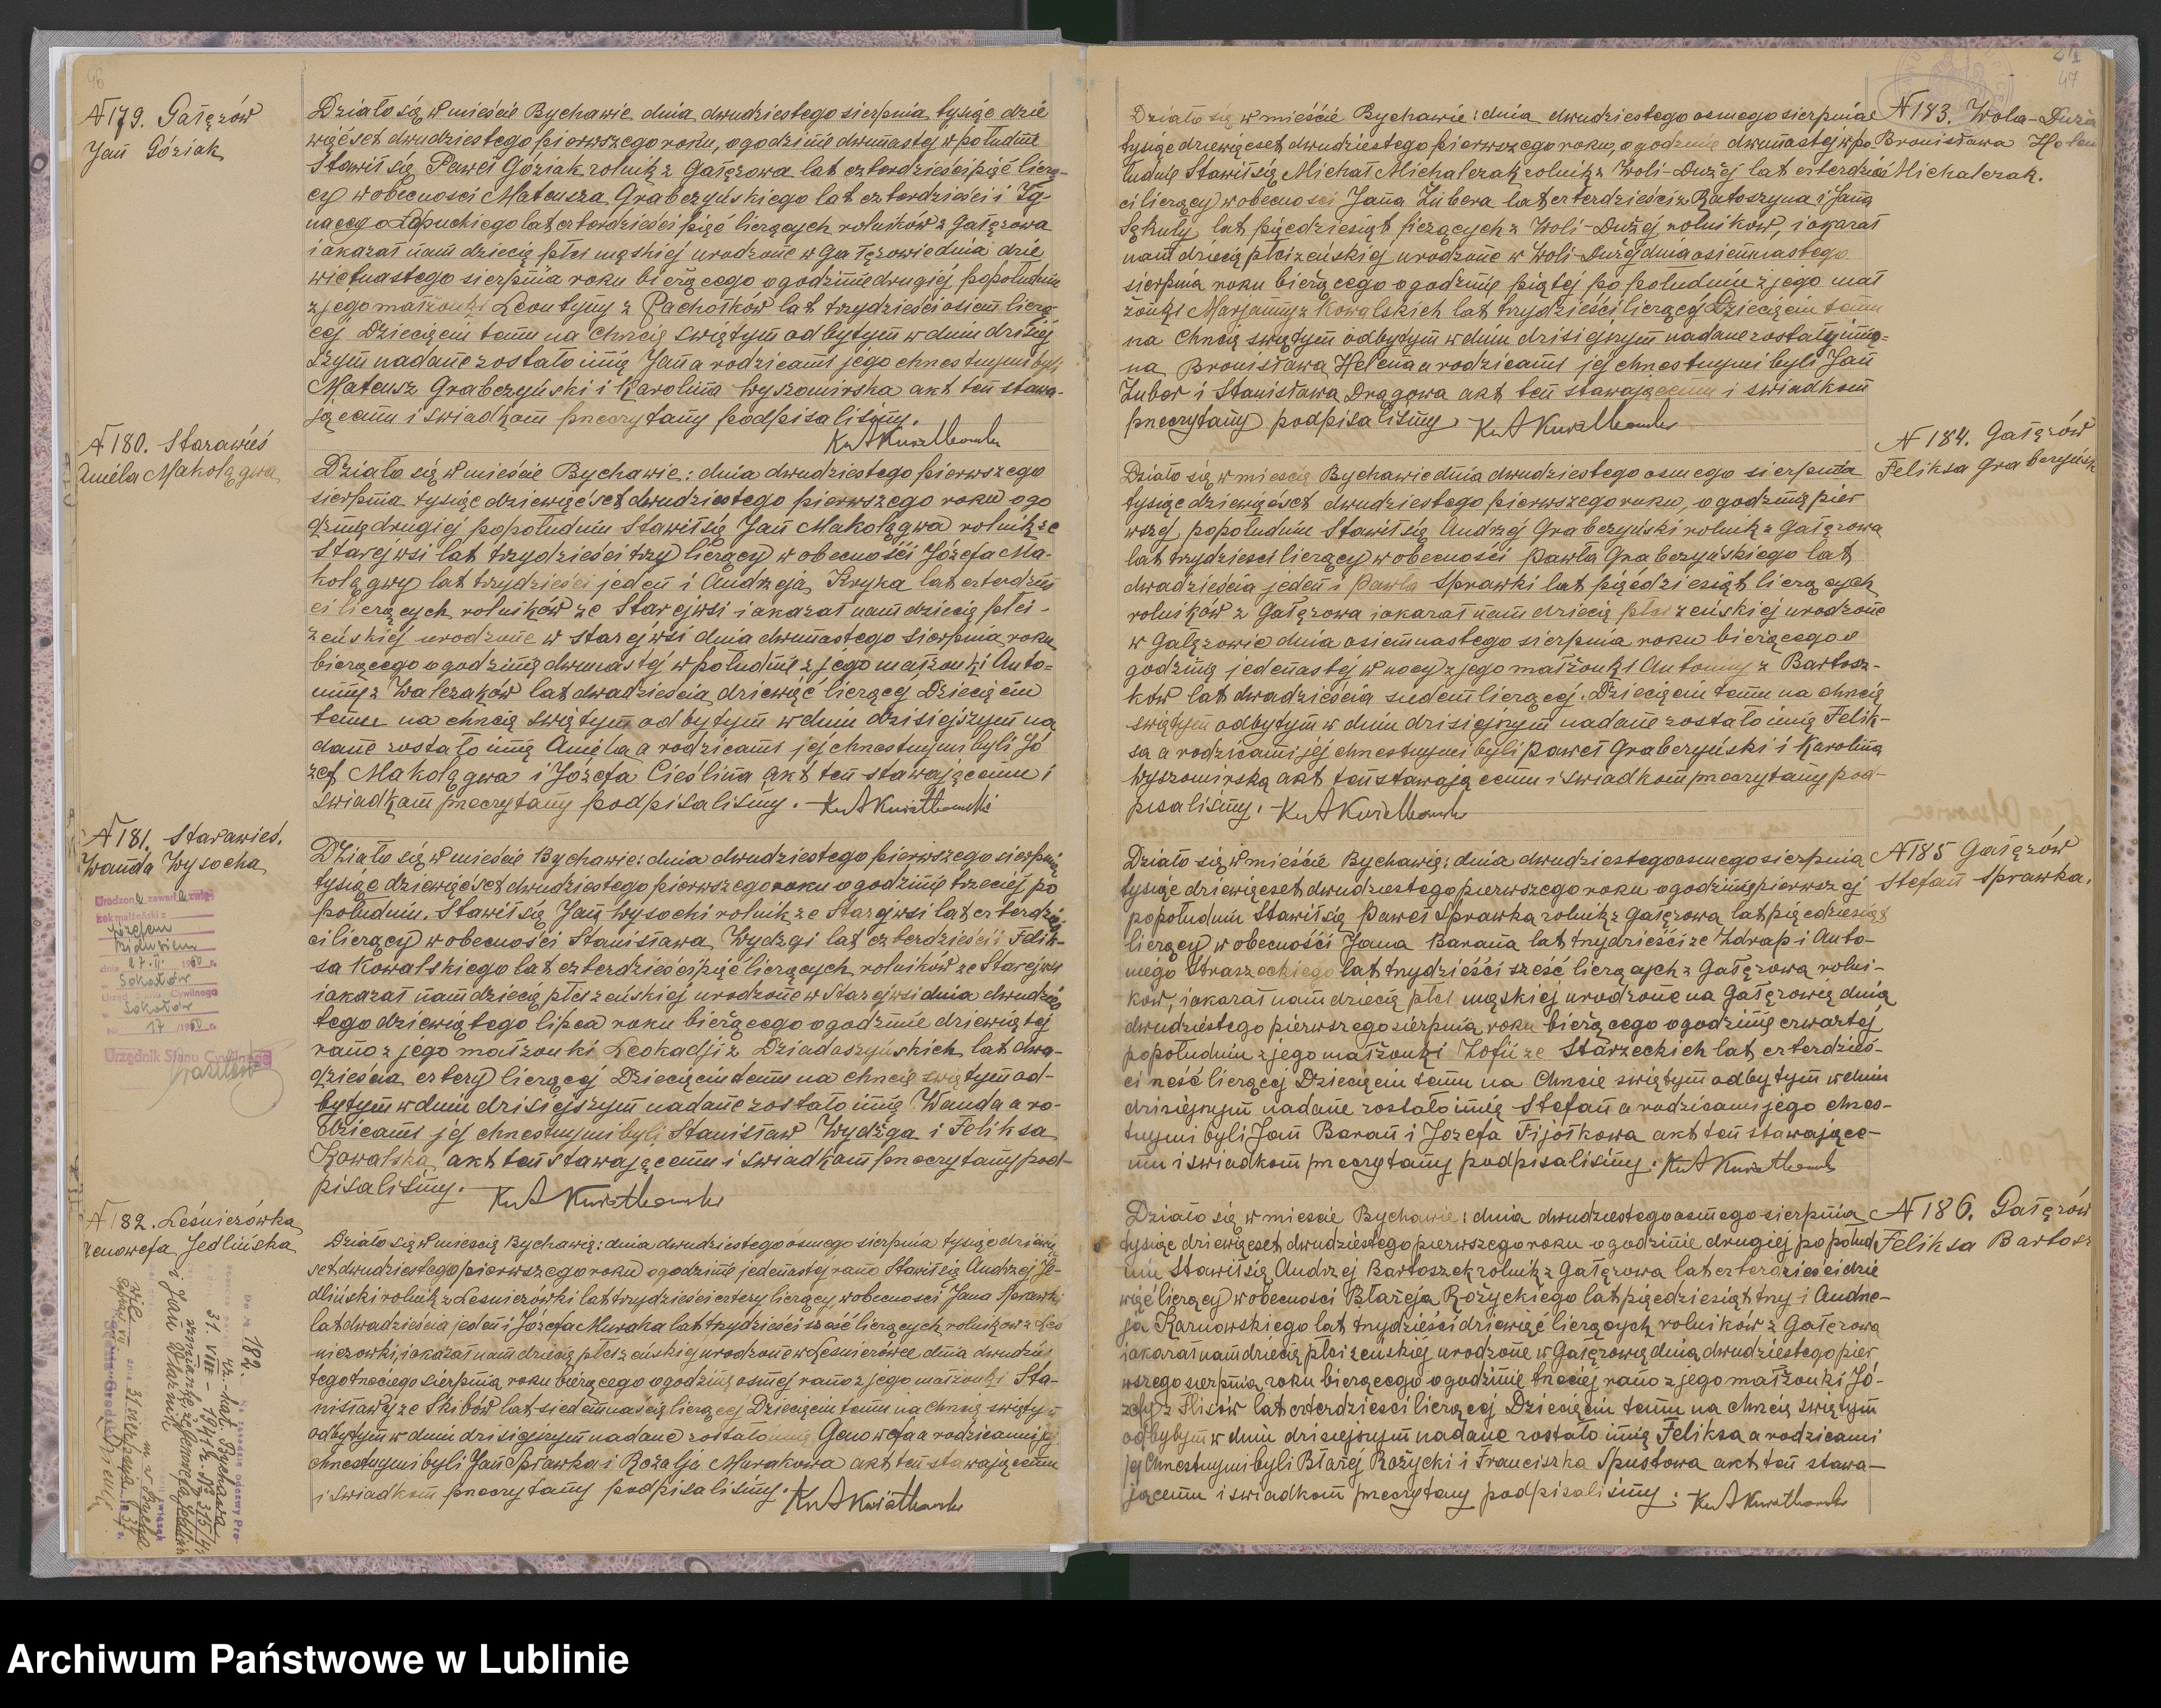 46
N 179. Gałęzów
Jan Góziak
Działo się w mieście Bychawie dnia dwudziestego sierpnia tysiąc dzie
więćset dwudziestego pierwszego roku, o godzinie dwunastej w południe
Stawił się Paweł Góziak rolnik z Gałęzowa lat czterdzieści pięć liczą-
cy w obecności Mateusza Grabczyńskiego lat czterdzieści i Ig-
nacego Łopuckiego lat czterdzieści pięć liczących rolników z Gałęzowa
i okazał nam dziecię płci męskiej urodzone w Gałęzowie dnia dzie
więtnastego sierpnia roku bieżącego o godzinie drugiej popołudniu
z jego małżonki Leontyny z Pachołków lat trzydzieści osiem liczą
cej Dziecięciu temu na Chrzcie świętym odbytym w dniu dzisiej
szym nadane zostało imię Jan a rodzicami jego chrzestnymi byli
Mateusz Grabczyński i Karolina Wyszomirska akt ten stawa-
jącemu i świadkom przeczytany podpisaliśmy.
Ks A Kwiatkowski
N 180. Starawieś
Aniela Makolągwa
Działo się w mieście Bychawie: dnia dwudziestego pierwszego
sierpnia tysiąc dziewięćset dwudziestego pierwszego roku o go
dzinie drugiej popołudniu Stawił się Jan Makolągwa rolnik ze
Starej wsi lat trzydzieści trzy liczący w obecności Józefa Ma-
kolągwy lat trzydzieści jeden i Andrzeja Kryka lat czterdzieś
ci liczących rolników ze Starejwsi i okazał nam dziecię płci-
żeńskiej urodzone w starejwsi dnia dwunastego sierpnia roku
bieżącego o godzinie dwunastej w południe z jego małżonki Anto-
niny z Walczaków lat dwadzieścia dziewięć liczącej Dziecięciu
temu na chrzcie świętym odbytym w dniu dzisiejszym na
dane zostało imię Aniela a rodzicami jej chrzestnymi byli Jó
zef Makolągwa i Józefa Cieślina akt ten stawającemu i
świadkom przeczytany podpisaliśmy. Ks A Kwiatkowski
N 181. Starawieś.
Wanda Wysocka
Urodzona zawarła związ
ek małżeński z
Józefem
Bidusiem
dnia 27.II. 1950 r.
w Sokołów
Urząd Stanu Cywilnego
w Sokołów
Nr 17 /1950 r.
Urzędnik Stanu Cywilnego
Działo się w mieście Bychawie: dnia dwudziestego pierwszego sierpnia
tysiąc dziewięćset dwudziestego pierwszego roku o godzinie trzeciej po
południu. Stawił się Jan Wysocki rolnik ze Starejwsi lat czterdzieś
ci liczący w obecności Stanisława Wydżgi lat czterdzieści i Felik-
sa Kowalskiego lat czterdzieści pięć liczących rolników ze Starejwsi
i okazał nam dziecię płci żeńskiej urodzone w Starejwsi dnia dwudzies
tego dziewiątego lipca roku bieżącego o godzinie dziewiątej
rano z jego małżonki Leokadji z Dziadoszyńskich lat dwa-
dzieścia cztery liczącej Dziecięciu temu na chrzcie świętym od-
bytym w dniu dzisiejszym nadane zostało imię Wanda a ro-
dzicami jej chrzestnymi byli Stanisław Wydżga i Feliksa
Kowalska akt ten stawającemu i świadkom przeczytany pod-
pisaliśmy. Ks A Kwiatkowski
N 182. Leśniczówka
Genowefa Jedlińska
Działo się w mieście Bychawie: dnia dwudziestego ósmego sierpnia tysiąc dziewię
set dwudziestego pierwszego roku o godzinie jedenastej rano Stawił się Andrzej Je-
dliński rolnik z Leśniczówki lat trzydzieści cztery liczący, w obecności Jana Sprawki
lat dwadzieścia jeden i Józefa Muraka lat trzydzieści sześć liczących rolników z Leś
niczówki, i okazał nam dziecię płci żeńskiej urodzone w Leśniczówce dnia dwudzies
tego trzeciego sierpnia roku bieżącego o godzinie ósmej rano z jego małżonki Sta-
nisławy ze Skibów lat siedemnaście liczącej Dziecięciu temu na chrzcie świętym
odbytym w dniu dzisiejszym nadane zostało imię Genowefa a rodzicami jej
chrzestnymi byli Jan Sprawka i Rozalja Murakowa akt ten stawającemu
i świadkom przeczytany podpisaliśmy. Ks A Kwiatkowski
47
N 183. Wola-Duża
Bronisława Helena
Michalczak.
Działo się w mieście Bychawie: dnia dwudziestego osmego sierpnia
tysiąc dziewięćset dwudziestego pierwszego roku, o godzinie dwunastej w po
łudnie Stawił się Michał Michalczak rolnik z Woli-Dużej lat czterdzieś
ci liczący w obecności Jana Zubera lat czterdzieści z Ratoszyna i Jana
Sękuly lat pięćdziesiąt liczących z Woli-Dużej rolników, i okazał
nam dziecię płci żeńskiej urodzone w Woli-Dużej dnia osiemnastego
sierpnia roku bieżącego o godzinie piątej po południu z jego mał
żonki Marjanny z Kowalskich lat trzydzieści liczącej Dziecięciu temu
na Chrzcie świętym odbytym w dniu dzisiejszym nadane zostały imio-
na Bronisława Helena a rodzicami jej chrzestnymi byli Jan
Zuber i Stanisława Drągowa akt ten stawającemu i świadkom
przeczytany podpisaliśmy Ks A Kwiatkowski
N 184. Gałęzów
Feliksa Grabczyńsk
Działo się w mieście Bychawie dnia dwudziestego osmego sierpnia
tysiąc dziewięćset dwudziestego pierwszego roku, o godzinie pier
wszej popołudniu Stawił się Andrzej Grabczyński rolnik z Gałęzowa
lat trzydzieści liczący w obecności Pawła Grabczyńskiego lat
dwadzieścia jeden i Pawła Sprawki lat pięćdziesiąt liczących
rolników z Gałęzowa i okazał nam dziecię płci żeńskiej urodzone
w Gałęzowie dnia osiemnastego sierpnia roku bieżącego o
godzinie jedenastej w nocy z jego małżonki Antoniny z Bartosz-
ków lat dwadzieścia siedem liczącej. Dziecięciu temu na chrzcie
świętym odbytym w dniu dzisiejszym nadane zostało imię Felik-
sa a rodzicami jej chrzestnymi byli Paweł Grabczyński i Karolina
Wyszomirska akt ten stawającemu i świadkom przeczytany pod-
pisaliśmy. Ks A Kwiatkowski
N 185 Gałęzów
Stefan Sprawka.
Działo się w mieście Bychawie: dnia dwudziestego osmego sierpnia
tysiąc dziewięćset dwudziestego pierwszego roku o godzinie pierwszej
popołudniu Stawił się Paweł Sprawka rolnik z Gałęzowa lat pięćdziesiąt
liczący w obecności Jana Barana lat trzydzieści ze Zdrap i Anto-
niego Straszeckiego lat trzydzieści sześć liczących z Gałęzowa rolni-
ków, i okazał nam dziecię płci męskiej urodzone na Gałęzowie dnia
dwudziestego pierwszego sierpnia roku bieżącego o godzinie czwartej
popołudniu z jego małżonki Zofii ze Starzeckich lat czterdzieś-
ci sześć liczącej Dziecięciu temu na Chrzcie świętym odbytym w dniu
dzisiejszym nadane zostało imię Stefan a rodzicami jego chrzes-
tnymi byli Jan Baran i Jozefa Fijołkowa akt ten stawające-
mu i świadkom przeczytany podpisaliśmy. Ks A Kwiatkowski
N 186. Gałęzów
Feliksa Bartosz
Działo się w mieście Bychawie: dnia dwudziestego osmego sierpnia
tysiąc dziewięćset dwudziestego pierwszego roku o godzinie drugiej po połud
niu Stawił się Andrzej Bartoszek rolnik z Gałęzowa lat czterdzieści dzie
więć liczący w obecności Błażeja Rożyckiego lat pięćdziesiąt trzy i Andrze-
ja Karnowskiego lat trzydzieści dziewięć liczących rolników z Gałęzowa
i okazał nam dziecię płci żeńskiej urodzone w Gałęzowie dnia dwudziestego pier
wszego sierpnia roku bieżącego o godzinie trzeciej rano z jego małżonki Jó-
zefy z Flisów lat czterdzieści liczącej Dziecięciu temu na chrzcie świętym
odbytym w dniu dzisiejszym nadane zostało imię Feliksa a rodzicami
jej Chrzestnymi byli Błażej Rożycki i Franciszka Spustowa akt ten stawa-
jącemu i świadkom przeczytany podpisaliśmy: Ks A Kwiatkowski
Archiwum Państwowe w Lublinie